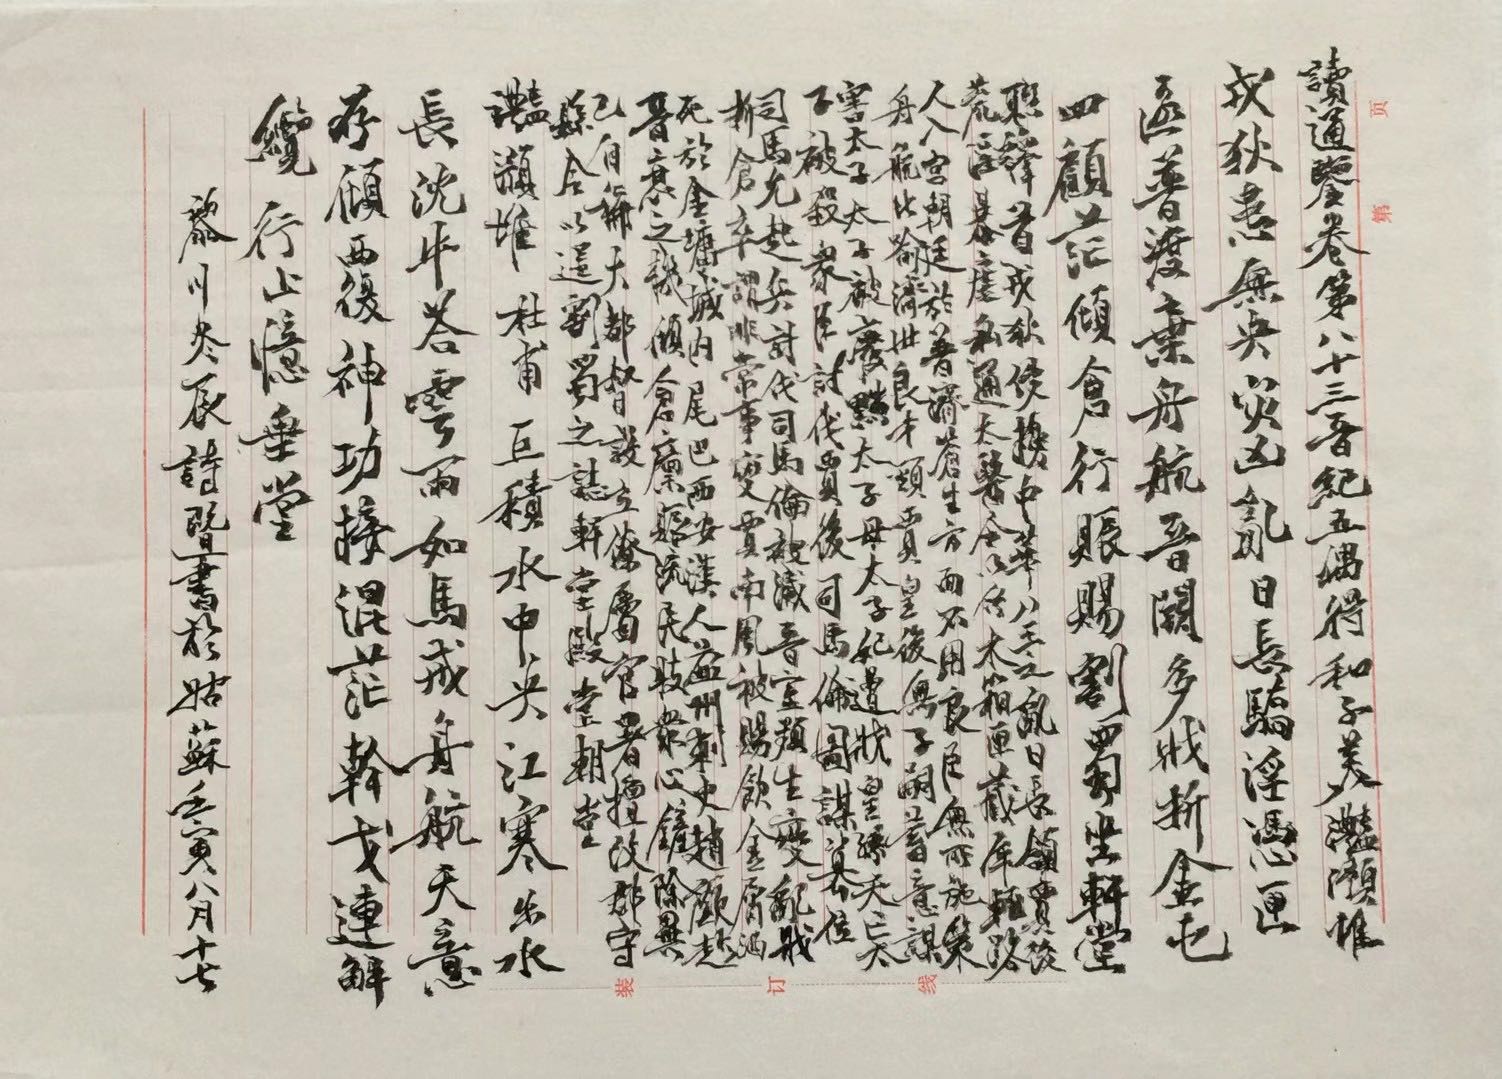 讀通鑒卷第八十三晉紀五偶得和子美灩澦堆
戎狄患無央災凶亂日長驕淫憑匣
匝普渡棄舟航晉闕多戕折金屯
四顧茫傾倉行賑賜割蜀坐軒堂
釋昔戎狄侵擾中華八王之亂日長領賈後
荒淫暴虐私通太醫令以路
人入宮朝廷於普濟蒼生方面不用良臣無所施策
舟航比喻濟世良才頭賈皇後無子嗣蓄意謀
害太子太子被廢黜太子母太子妃遭戕皇孫夭亡太
子被殺衆臣討伐賈後司馬倫圖謀篡位
司馬允起兵討伐司馬倫被滅晉室頻生變亂戕
折倉卒謂非常事變賈南風被賜飲金屑酒
死於金墉城内尾巴西安漢人益州刺史趙廞趁
晉衰之機傾倉廩賑流民收衆心鏟除異
己自稱大都督設立僚屬官署擅改郡守
縣令以逞割蜀之誌軒堂殿堂朝堂
灩澦堆 杜甫 巨積水中央江寒出水
長沈牛答雲雨如馬戒舟航天意
存傾西復神功接混茫幹戈連解
纜行止憶垂堂
黎川冬辰詩暨書於姑蘇壬寅八月十七
第 页
装 订 线